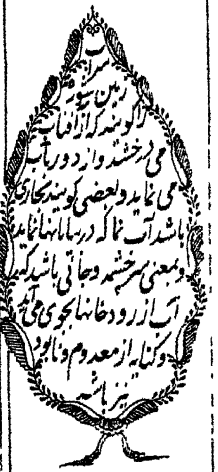 سراب
زمین شوره
را گویند که از آفتاب
می درخشد و از دور بآب
می نماید و بعضی گویند بخاری
باشد آب نما که در بیابانها نماید
و بمعنی سرچشمه و جائی باشد که
آب از رودخانها بجوی می آید
و کنایه از معدوم و نابود
نیز باشد